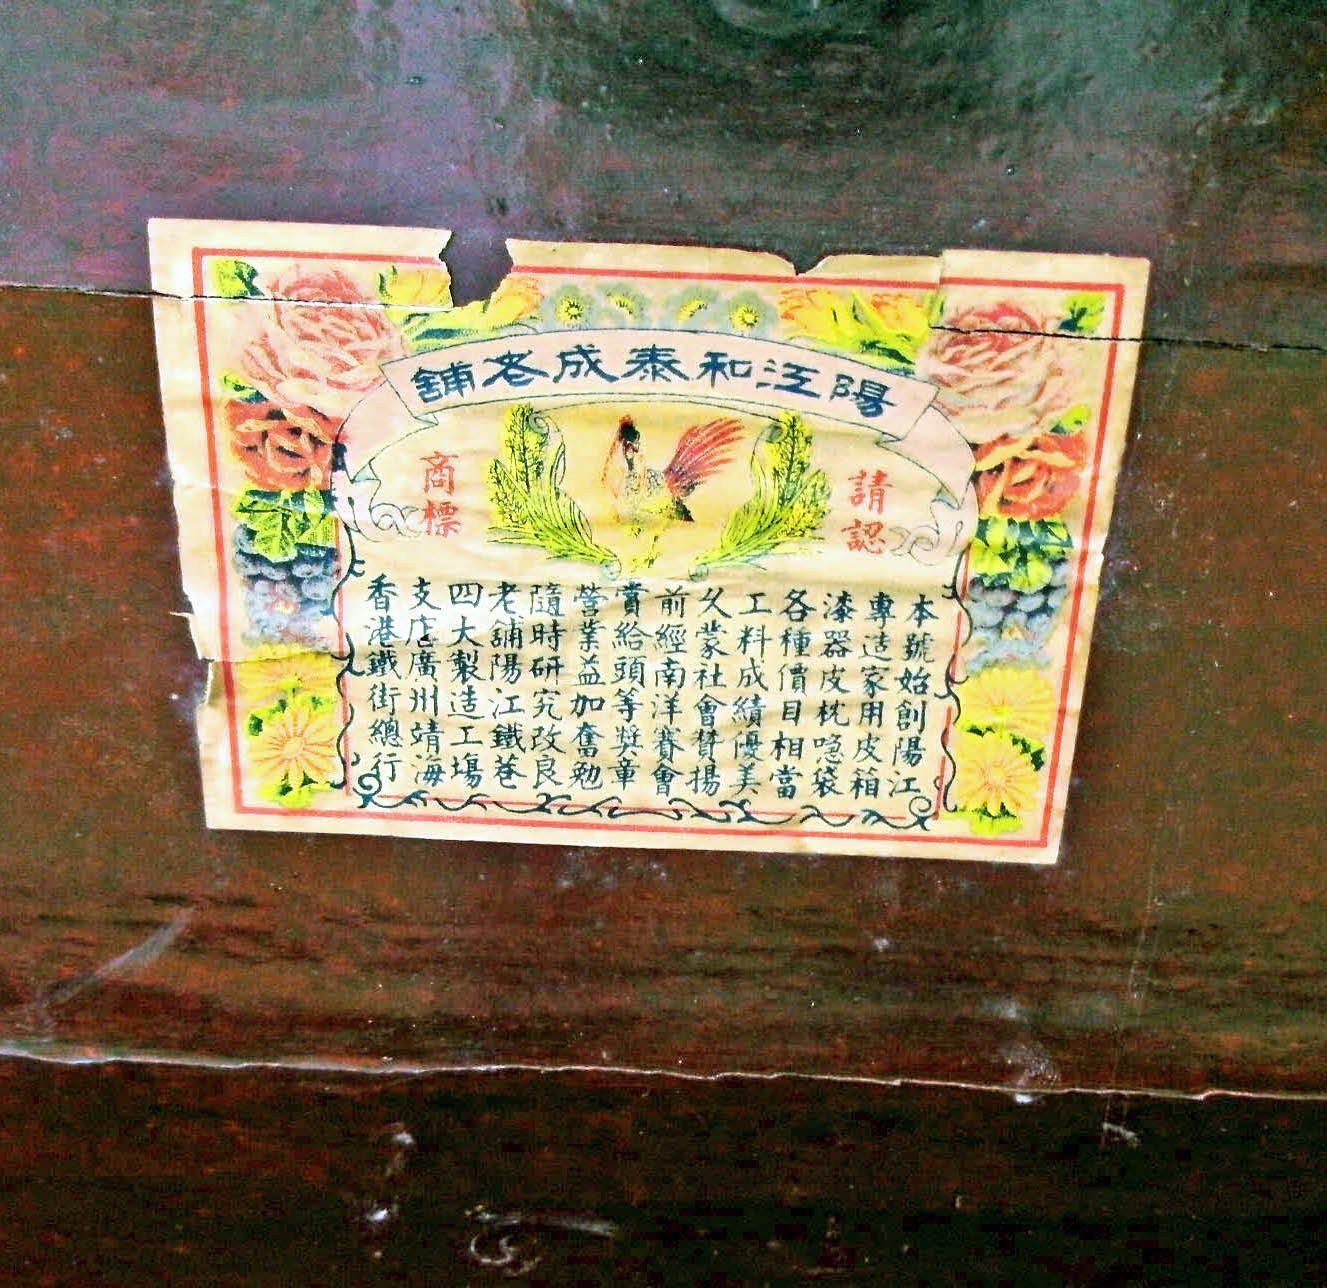 陽江和泰成老舖
請認
商標
本號始創陽江
專造家用皮箱
漆器皮枕喼袋
各種價目相當
工料成績優美
久蒙社會贊揚
前經南洋賽會
賞給頭等獎章
營業益加奮勉
隨時研究改良
老舖陽江鐵巷
四大製造工塲
支店廣州靖海
香港鐵街總行